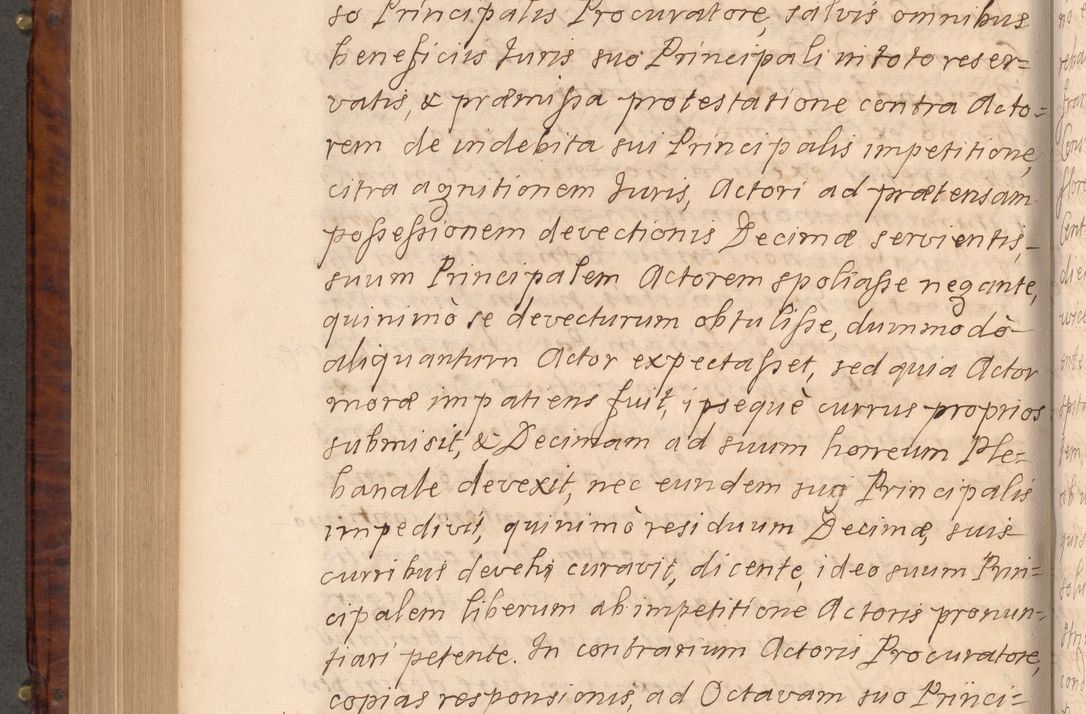 so Principalis Procuratore, salvis omnibus
beneficiis Juris suo Principali in toto reser=
vatis, & præmissa protestatione contra Acto=
rem de indebita sui Principalis impetitione,
citra agnitionem Juris, Actori ad prætensam
possessionem devectionis Decimæ servientis,
suum Principalem Actorem spoliasse negante,
quinimò se devecturum obtulisse, dummodò
aliquantum Actor expectasset, sed quia Actor
moræ impatiens fuit, ipseque currus proprios
submisit, & Decimam ad suum horreum Ple=
banale devexit, nec eundem suus Principalis
impedivit, quinimò residuum Decimæ, suis
curribus devehi curavit, dicente, ideo suum Prin=
cipalem liberum ab impetitione Actoris pronun=
tiari petente. In contrarium Actoris Procuratore,
copias responsionis, ad Octavam suo Princi=